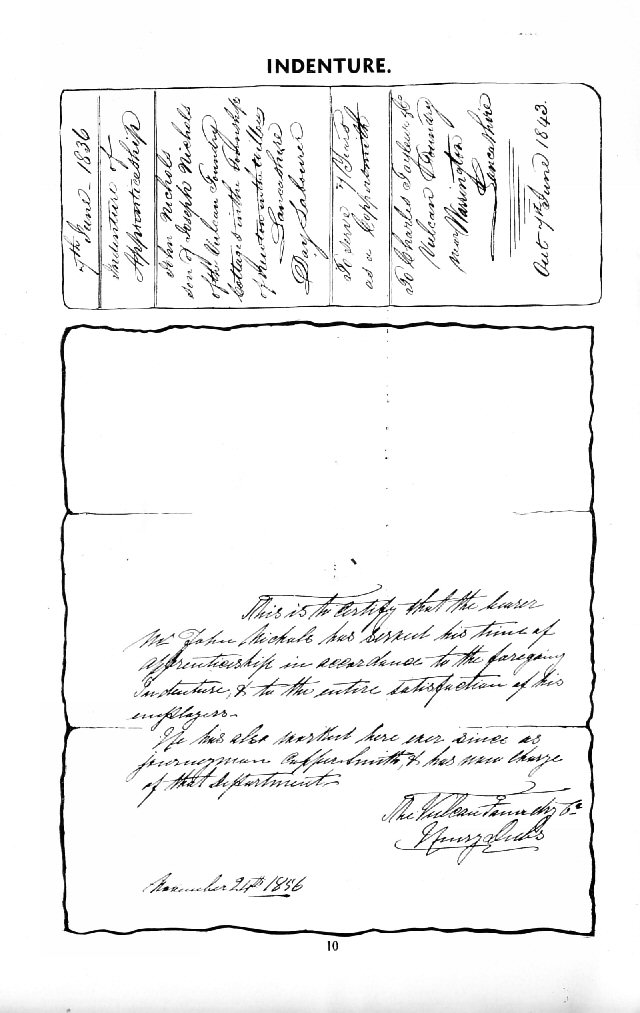 INDENTURE.
7th June - 1836
Indenture of
Apprenticeship
John Nichols
son of Joseph Nichols
of the Vulcan Foundry
Cottages in the Township
of Newton in the Willows
Lancashire
Day Labourer
To Serve 7 Years
as a Coppersmith
To Charles Tayleur & Co
Vulcan Foundry
near Warrington
Lancashire
Out 7th June 1843.
This is to Certify that the bearer
Mr John Nichols has served his time of
apprenticeship in accordance to the foregoing
Indenture, & to the entire satisfaction of his
employers.
He has also worked here ever since as
journeyman CopperSmith, & has now charge
of that department.
The Vulcan Foundry Co
Henry Dubs
November 24th 1856
10